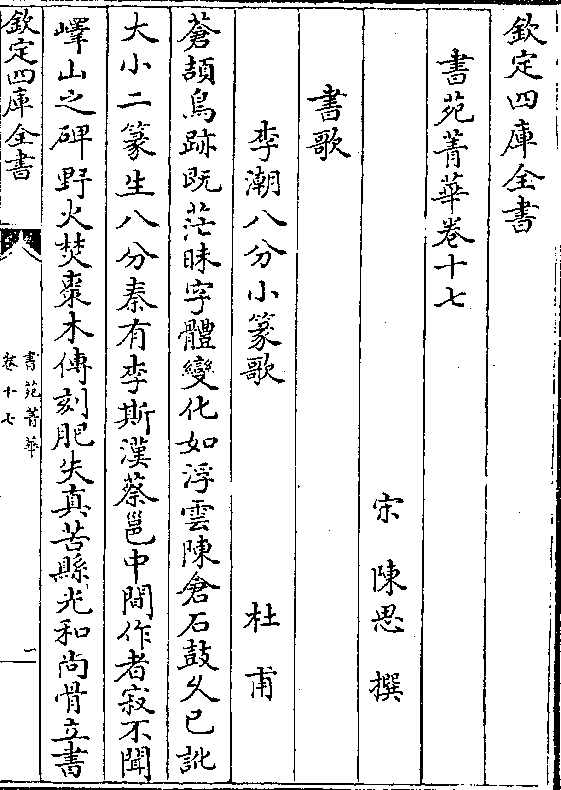 欽定四庫全書
書苑菁華卷十七
宋 陳思 撰
書歌
李潮八分小篆歌 杜甫
蒼頡鳥跡既茫昧字體變化如浮雲陳倉石鼓久已訛
大小二篆生八分秦有李斯漢蔡邕中間作者寂不聞
嶧山之碑野火焚棗木傳刻肥失真苦縣光和尚骨立書
欽定四庫全書
書苑菁華
卷十七
一